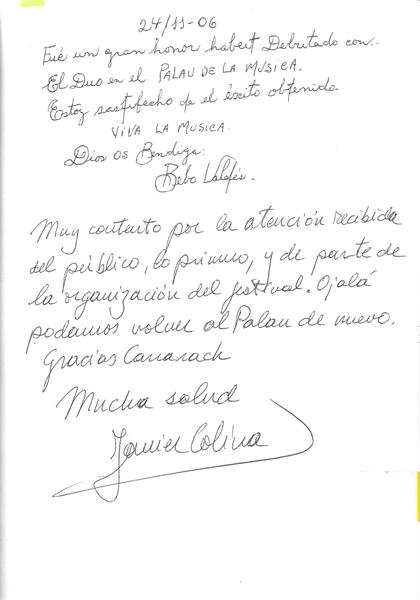 24/11-06
Fué un gran honor habert Debutado con..
El Duo en el PALAU DE LA MUSICA.
Estoy sastifecho de el éxito obtenido.
VIVA LA MUSICA.
Dios os Bendiga:
Bebo Valdés.
Muy contento por la atención recibida
del público, lo primero, y de parte de
la organización del festival. Ojalá
podamos volver al Palau de nuevo.
Gracias Canarach
Mucha salud
Javier Colina